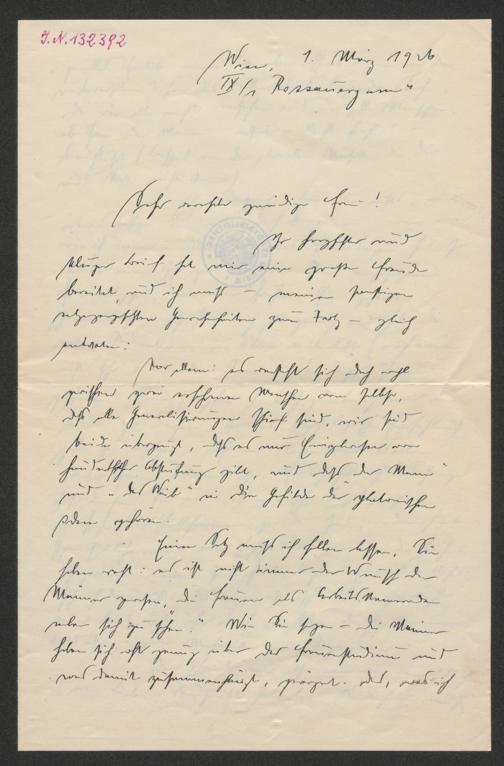 J.N. 132392
Wien, 1. März 1926
IX/1
Sehr verehrte gnädige Frau!
Ihr herzlicher und
kluger Brief hat mir eine große Freude
bereitet, und ich muß — meinen sonstigen
zum Trotz — gleich
antworten:
Vor allem: es versteht sich doch wohl
zwischen zwei erfahrenen Menschen von selbst,
daß alle Generalisierungen schief sind, wir sind
beide überzeugt, daß es nur
Abstufung gibt, und daß "der Mann"
und "das Weib" in die Gefilde der platonischen
Ideen gehören.
Einen Satz muß ich fallen lassen. Sie
haben recht: es ist nicht immer der Wunsch der
Männer gewesen, die Frauen als
neben sich zu sehen." Wie Sie sagen — die Männer
haben sich oft genug über das Frauenstudium und
was damit zusammenhängt, und, was ich